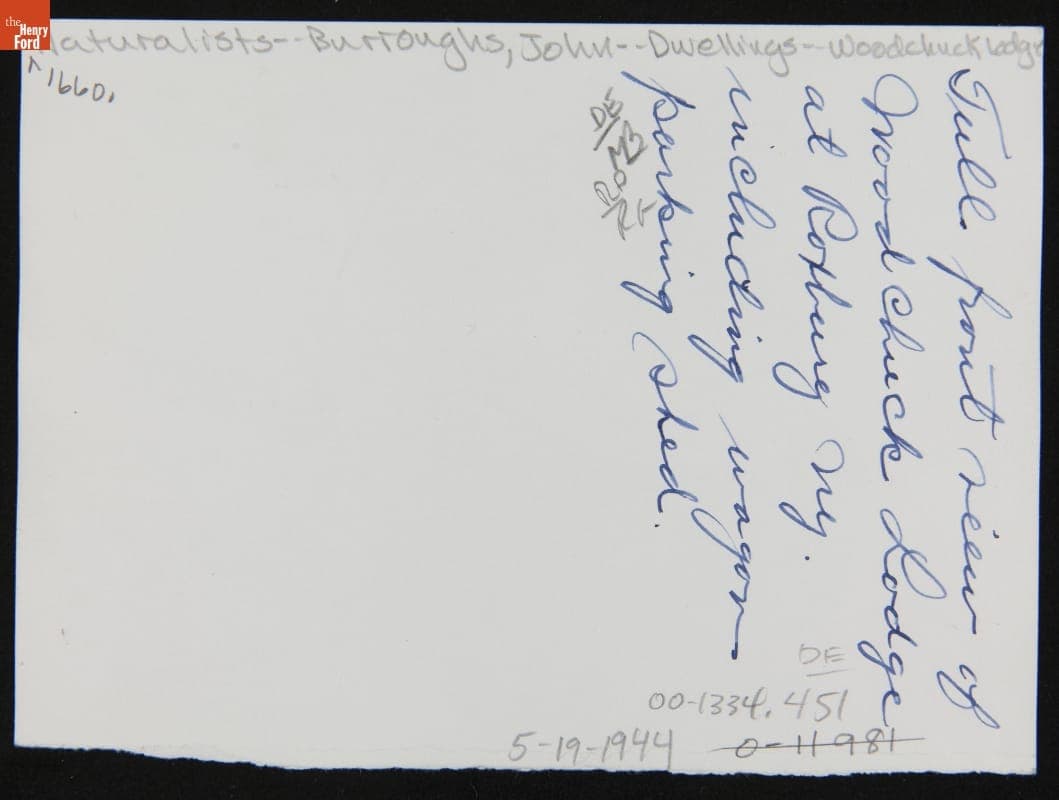 the Henry Ford
Naturalists--Burroughs, John--Dwellings--Woodchuck Lodge
1660.
Full front view of
Woodchuck Lodge
at Roxbury Ny.
including wagon
parking shed.
DE
00-1334.451
5-19-1944 0-11981